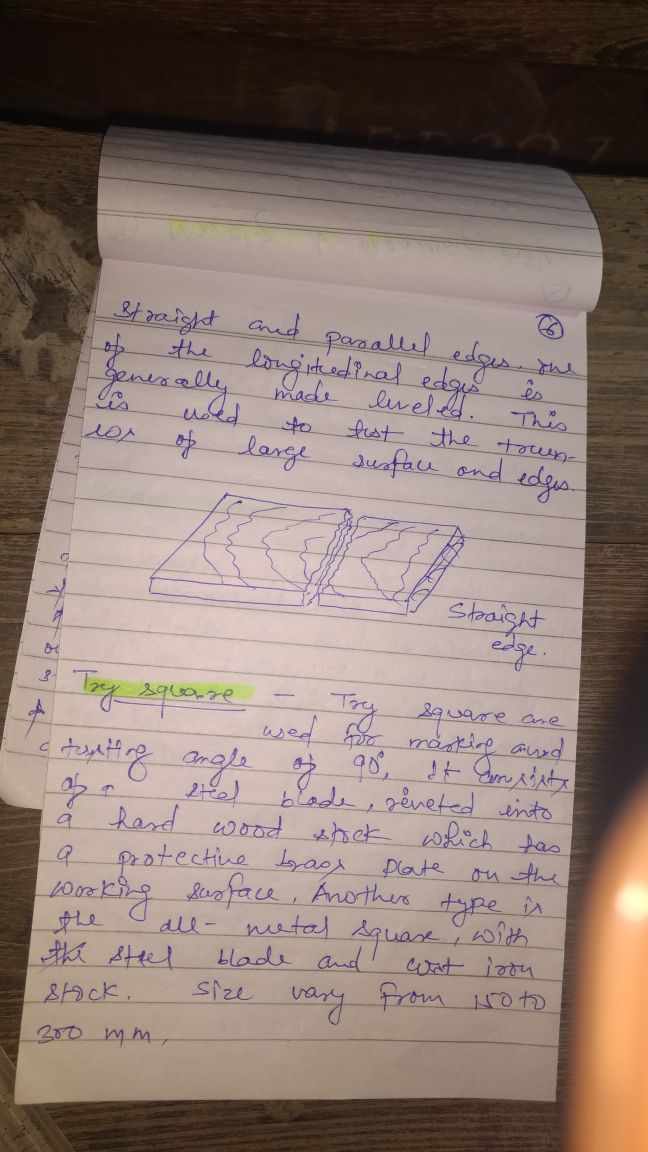 6
straight and parallel edges. one
of the longitedinal edges is
generally made leveled. This
is used to test the trown-
ess of large surface and edges.
Straight
edge.
Try square – Try square are
used for marking and
testing angle of 90°, It consists
of a steel blade, reveted into
a hard wood stock which has
a protective brass plate on the
working surface, Another type is
the all-metal square, with
the steel blade and cast iron
stock. Size vary from 150 to
300 mm,